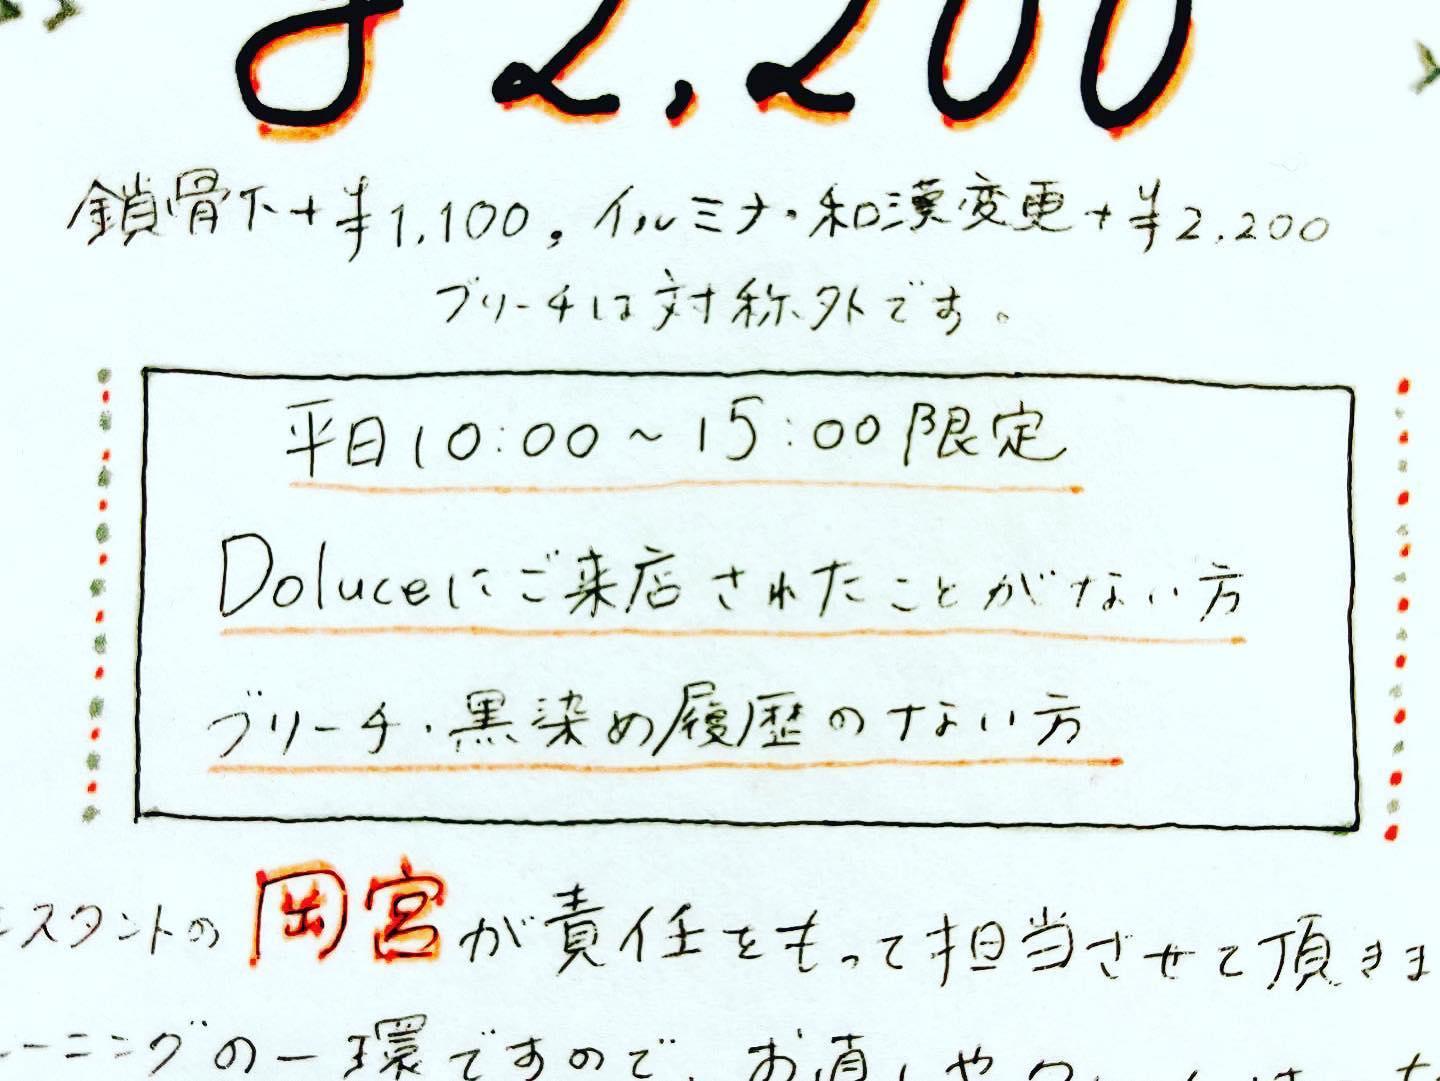 ¥2,200
鎖骨下+¥1,100。イルミナ・和漢変更+¥2,200
ブリーチは対称外です。
平日10:00~15:00限定
Doluceにご来店されたことがない方
ブリーチ・黒染め履歴のない方
スタントの岡宮が責任をもって担当させて頂きま
ーニングの一環ですので、お直しや